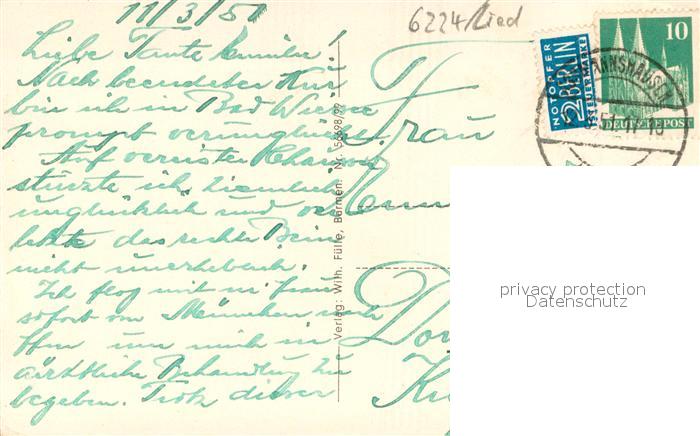 11/3/51
6224/Lied
Liebe Tante !
Nach beendeter Kur
bin ich in Bad Wiessee
prompt verunglückt.
Auf vereister Chaussee
stürzte ich ziemlich
unglücklich und ver
letzte das rechte Bein
nicht unerheblich.
Ich flog mit m. Frau
sofort von München nach
um mich in
ärztliche Behandlung zu
begeben. Trotz dieser
Verlag: Wilh. Fülle, Barmen. Nr. 56698/99
Frau
NOTOPFER
2 BERLIN
STEUERMARKE
10
DEUTSCHE POST
privacy protection
Datenschutz